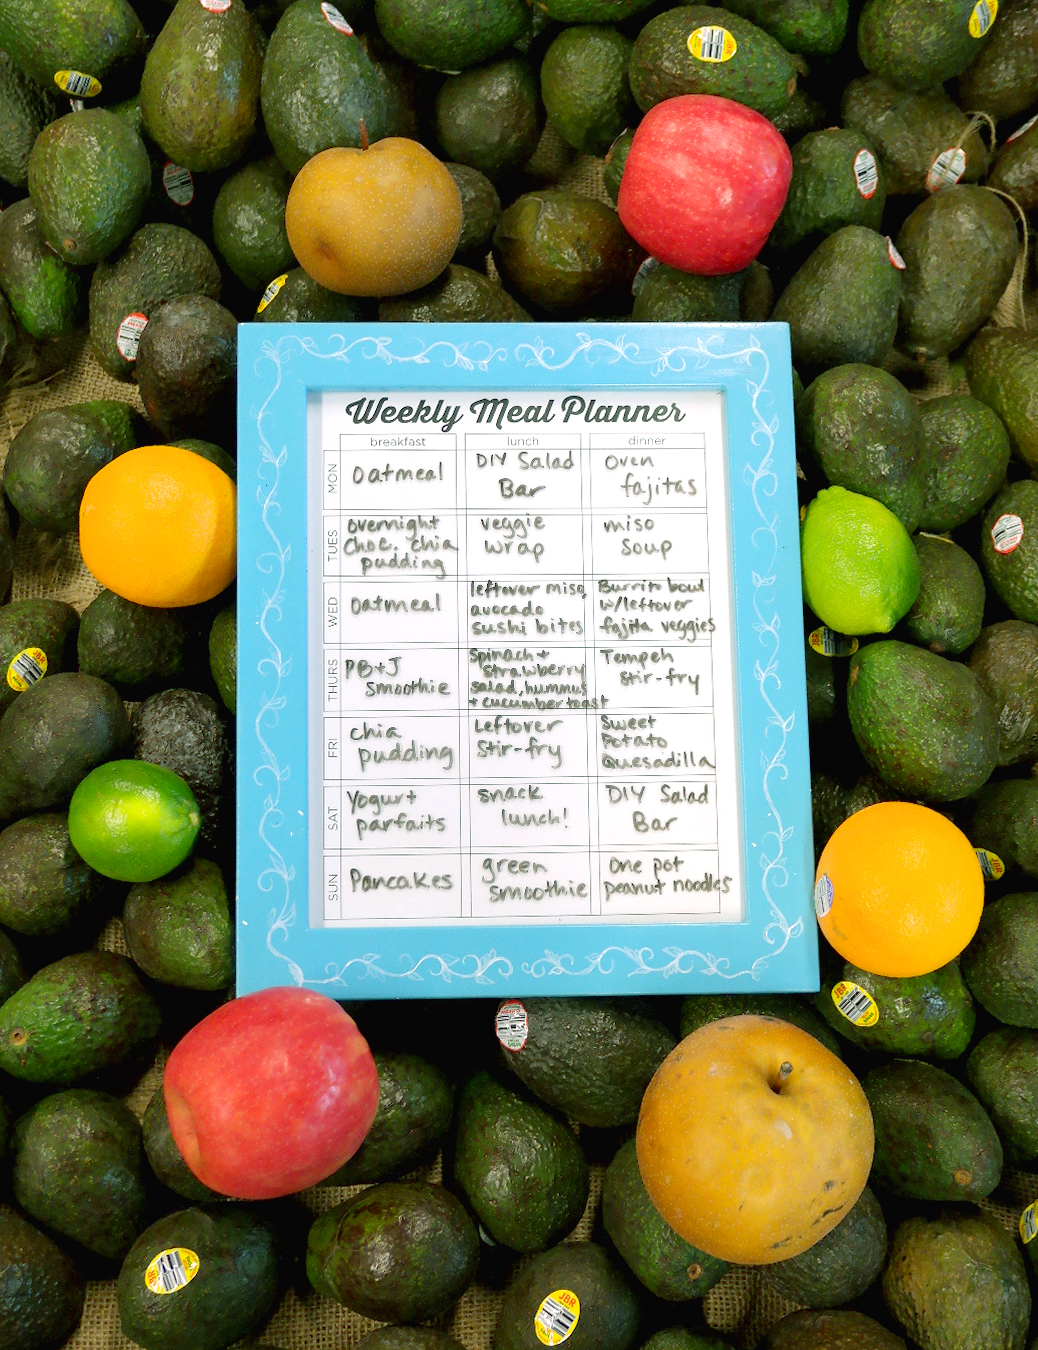 Weekly Meal Planner
breakfast lunch dinner
MON
Oatmeal
DIY Salad
Bar
Oven
fajitas
TUES
overnight
Choc. chia
pudding
veggie
wrap
miso
Soup
WED
Oatmeal
leftover miso,
avocado
sushi bites
Burrito bowl
w/leftover
fajita veggies
THURS
PB+J
Smoothie
Spinach +
Strawberry
salad, hummus
+ cucumber toast
Tempeh
Stir-fry
FRI
chia
pudding
Leftover
Stir-fry
Sweet
Potato
Quesadilla
SAT
Yogurt
parfaits
snack
lunch!
DIY Salad
Bar
SUN
Pancakes
green
smoothie
One pot
peanut noodles
JBR
JBR
JBR
JBR